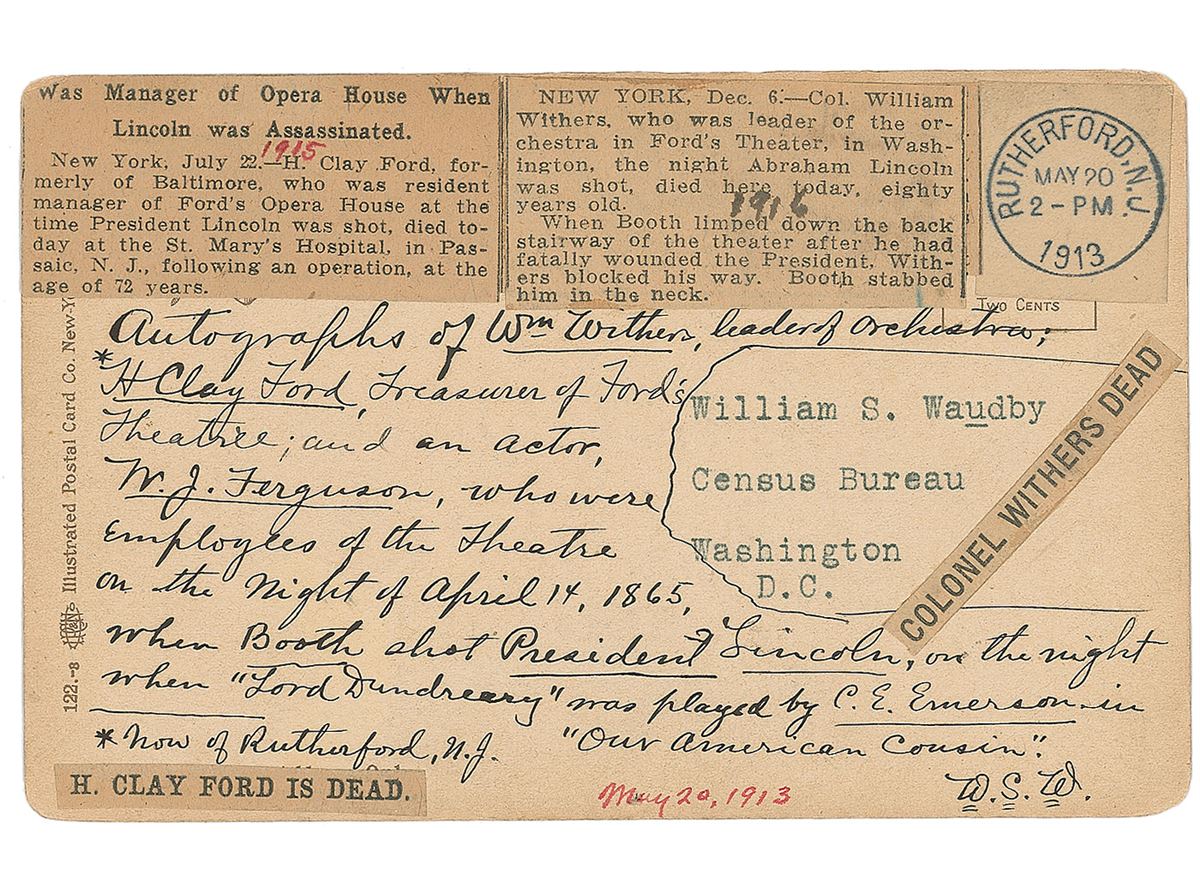 Was Manager of Opera House When
Lincoln was Assassinated.
1915
New York, July 22.—H. Clay Ford, for-
merly of Baltimore, who was resident
manager of Ford's Opera House at the
time President Lincoln was shot, died to-
day at the St. Mary's Hospital, in Pas-
saic, N. J., following an operation, at the
age of 72 years.
NEW YORK, Dec. 6.—Col. William
Withers, who was leader of the or-
chestra in Ford's Theater, in Wash-
ington, the night Abraham Lincoln
was shot, died here today, eighty
years old.
1916
When Booth limped down the back
stairway of the theater after he had
fatally wounded the President, With-
ers blocked his way. Booth stabbed
him in the neck.
RUTHERFORD, N.J.
MAY 20
2-PM.
1913
Two Cents
Autographs of Wm Withers, leader of orchestra;
*H Clay Ford, Treasurer of Ford's
Theatre; and an actor,
W. J. Ferguson, who were
employees of the Theatre
on the Night of April 14, 1865,
when Booth shot President Lincoln, on the night
when "Lord Dundreary" was played by C. E. Emerson in
"Our American Cousin".
* Now of Rutherford, N.J.
W.S.W.
William S. Waudby
Census Bureau
Washington
D.C.
COLONEL WITHERS DEAD
H. CLAY FORD IS DEAD.
May 20, 1913
122.-8
Illustrated Postal Card Co. New-Y